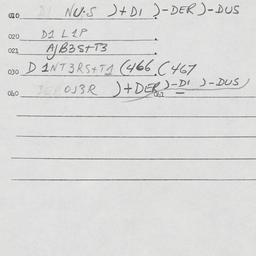 010 NU-S )+DI )-DER)-DUS
020 D1 L1P
021 AJB3S+T3
030 D 1NT3RS+T1 (466.(467
060 OJ3R )+DER)-DI )-DUS